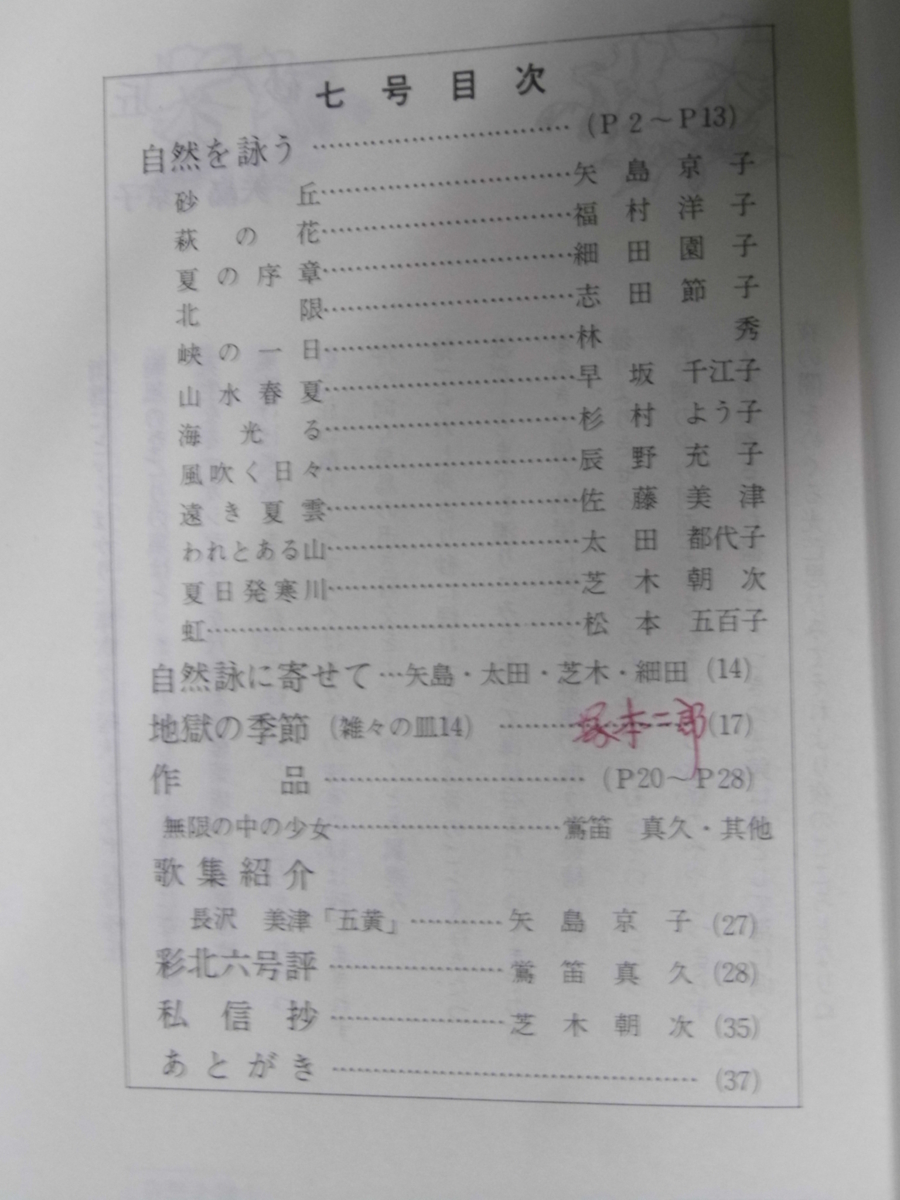 七号目次
自然を詠う ……………… (P2～P13)
砂丘………………矢島京子
萩の花………………福村洋子
夏の序章………………細田園子
北限………………志田節子
峡の一日………………林秀
山水春夏………………早坂千江子
海光る………………杉村よう子
風吹く日々………………辰野充子
遠き夏雲………………佐藤美津
われとある山………………太田都代子
夏日発寒川………………芝木朝次
虹………………松本五百子
自然詠に寄せて…矢島・太田・芝木・細田 (14)
地獄の季節 (雑々の皿14) ………塚本二郎 (17)
作品 ……………… (P20～P28)
無限の中の少女………………鴬笛 真久・其他
歌集紹介
長沢 美津「五黄」…………矢島京子 (27)
彩北六号評 …………鴬笛真久 (28)
私信抄 …………芝木朝次 (35)
あとがき ……………… (37)